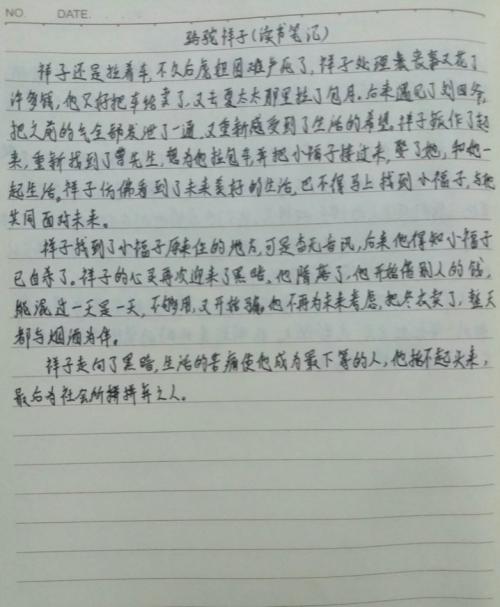 NO. DATE.
骆驼祥子(读书笔记)
祥子还是拉着车,不久后虎妞因难产死了,祥子处理丧事又花了
许多钱,他只好把车给卖了,又去夏太太那里拉了包月。后来遇见了刘四爷,
把之前的气全部发泄了一通,又重新感受到了生活的希望。祥子振作了起
来,重新找到了曹先生,想为他拉包车,并把小福子接过来,娶了她,和她一
起生活。祥子仿佛看到了未来美好的生活,巴不得马上找到小福子,与她
共同面对未来。
祥子找到了小福子原来住的地方,可是杳无音讯,后来他得知小福子
已自尽了。祥子的心灵再次迎来了黑暗,他堕落了,他开始借别人的钱,
能混过一天是一天,不够用,又开始骗。他不再为未来考虑,把冬衣卖了,整天
都与烟酒为伴。
祥子走向了黑暗,生活的苦痛使他成为最下等的人,他抬不起头来,
最后为社会所摒弃之人。